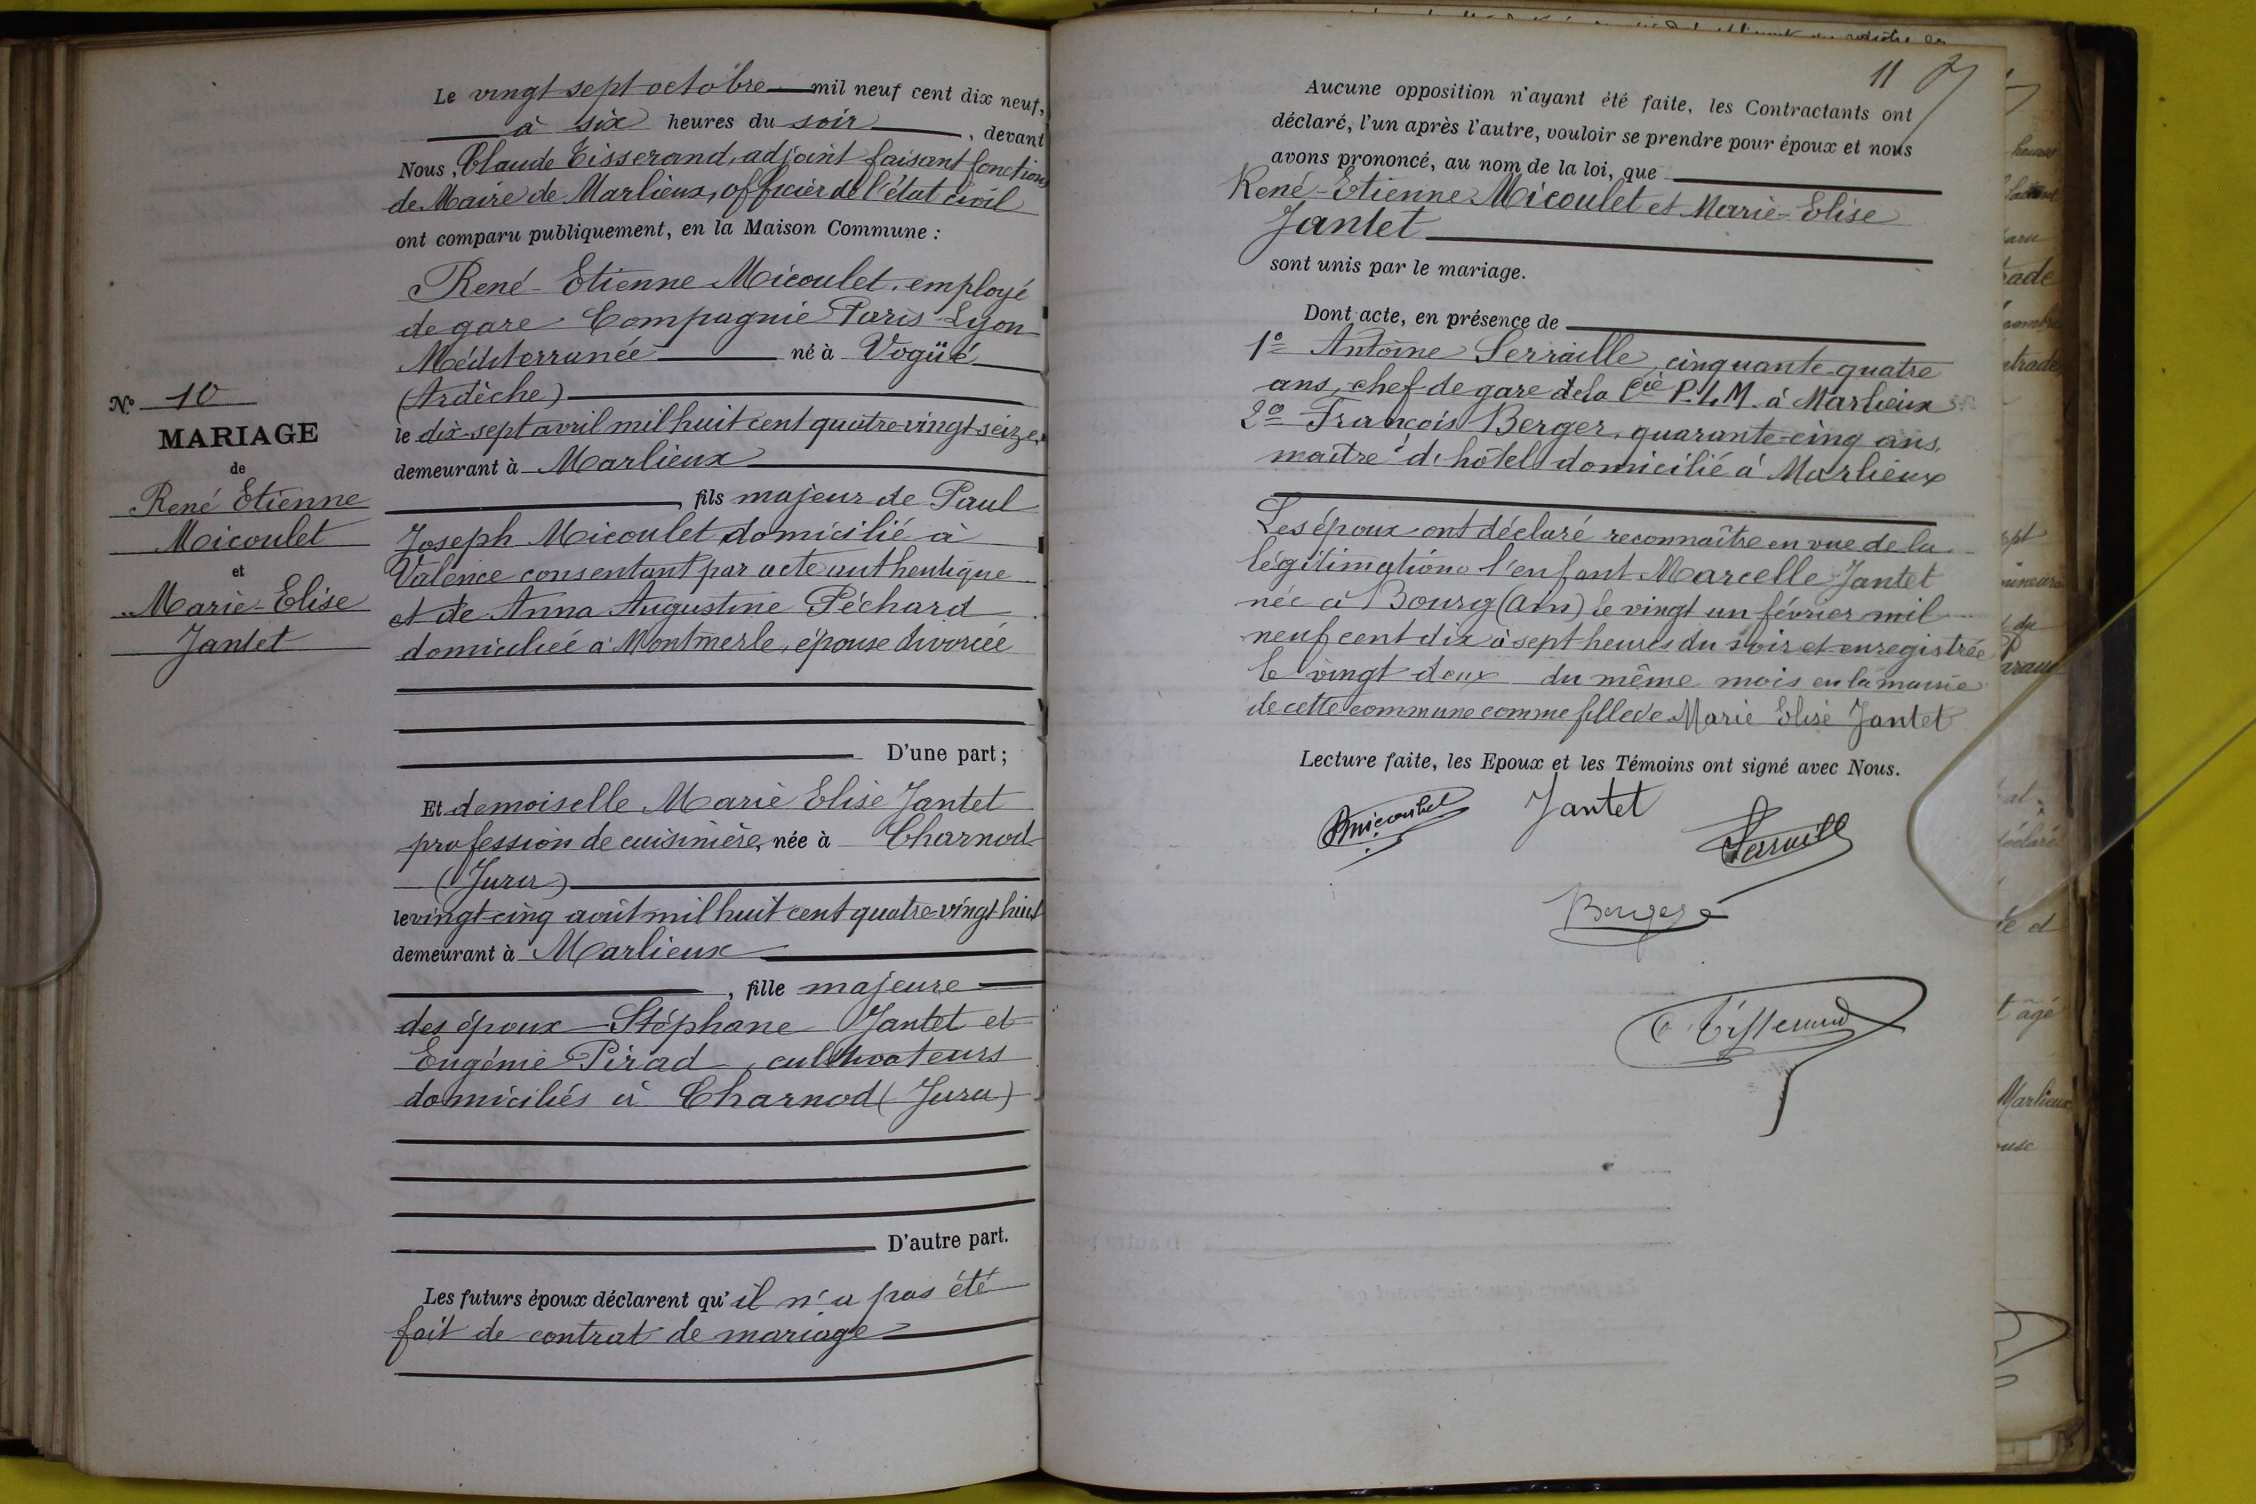 Le vingt sept octobre mil neuf cent dix neuf,
à six heures du soir, devant
Nous, Claude Tisserand, adjoint faisant fonctions
de Maire de Marlieux, officier de l'état civil
ont comparu publiquement, en la Maison Commune :
René-Etienne Micoulet, employé
de gare Compagnie Paris-Lyon
Méditerranée né à Vogüé
(Ardèche)
le dix-sept avril mil huit cent quatre-vingt-seize,
demeurant à Marlieux
, fils majeur de Paul
Joseph Micoulet domicilié à
Valence consentant par acte authentique
et de Anna Augustine Péchard
domiciliée à Montmerle, épouse divorcée
D'une part ;
Et demoiselle Marie Elise Jantet
profession de cuisinière, née à Charnod
(Jura)
le vingt-cinq août mil huit cent quatre-vingt-huit
demeurant à Marlieux
, fille majeure
des époux Stéphane Jantet et
Eugénie Pirad, cultivateurs
domiciliés à Charnod (Jura)
D'autre part.
Les futurs époux déclarent qu'il n'a pas été
fait de contrat de mariage
N° 10
MARIAGE
de
René Etienne
Micoulet
et
Marie-Elise
Jantet
11
Aucune opposition n'ayant été faite, les Contractants ont
déclaré, l'un après l'autre, vouloir se prendre pour époux et nous
avons prononcé, au nom de la loi, que
René-Etienne Micoulet et Marie-Elise
Jantet
sont unis par le mariage.
Dont acte, en présence de
1° Antoine Serraille, cinquante-quatre
ans, chef de gare de la Cie P.L.M. à Marlieux
2° François Berger, quarante-cinq ans,
maître d'hôtel domicilié à Marlieux
Les époux ont déclaré reconnaître en vue de la
légitimation l'enfant Marcelle Jantet
née à Bourg (Ain) le vingt un février mil
neuf cent dix à sept heures du soir et enregistrée
le vingt deux du même mois en la mairie
de cette commune comme fille de Marie Elise Jantet
Lecture faite, les Epoux et les Témoins ont signé avec Nous.
Rmicoulet
Jantet
Serraille
Berger
C. Tisserand